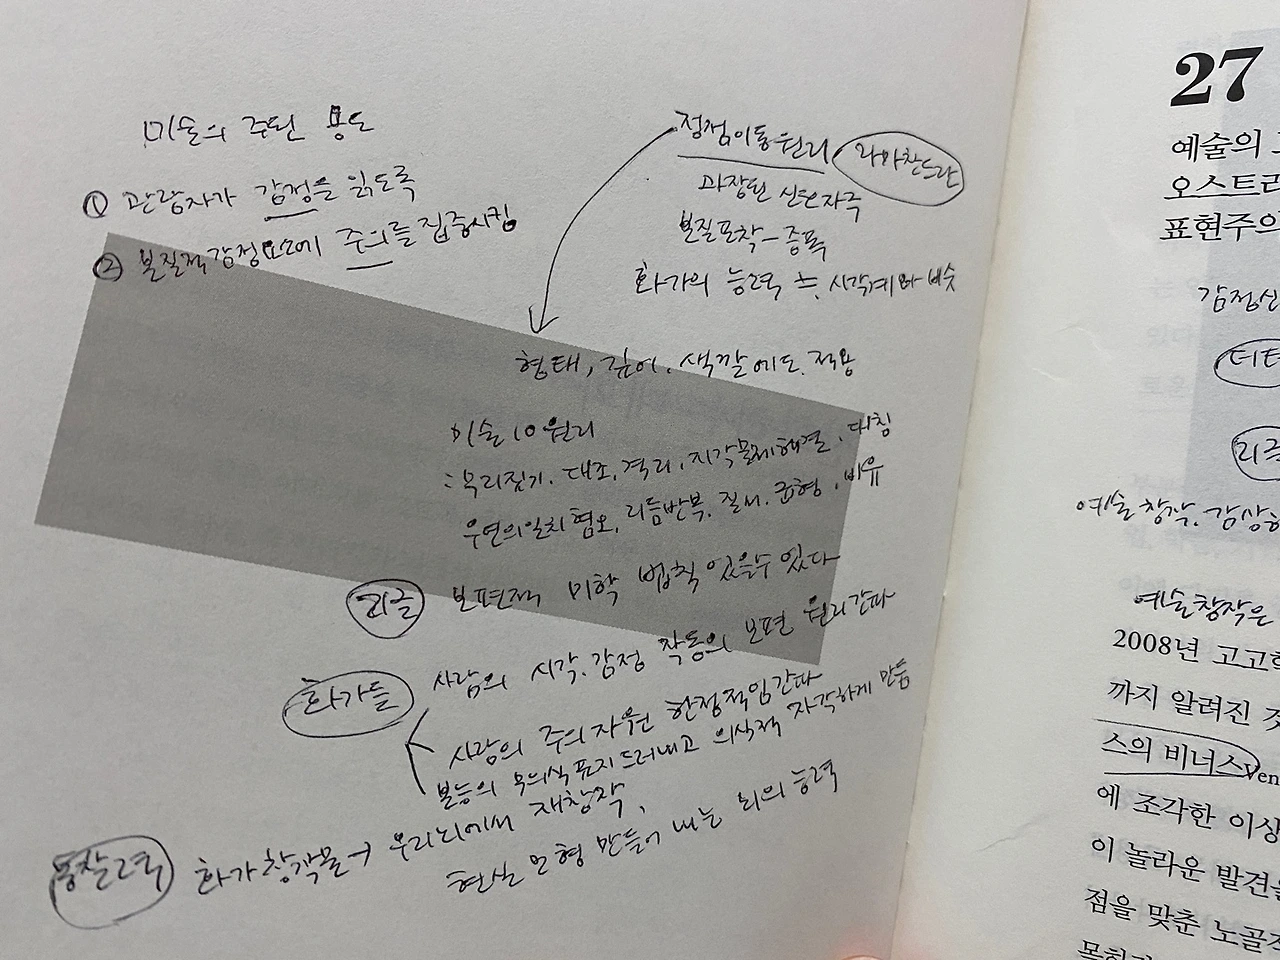 미술의 주된 용도
① 관람자가 감정을 읽도록
② 본질적 감정요소에 주의를 집중시킴
정점이동원리 라마찬드란
과장된 신호자극
본질포착-증폭
화가의 능력 ≒ 시각계와 비슷
형태, 깊이, 색깔에도 적용
미술 10원리
: 무리짓기, 대조, 격리, 지각문제해결, 대칭
우연의일치 혐오, 리듬반복, 질서, 균형, 비유
리글 보편적 미학 법칙 있을수 있다
화가들 사람의 시각, 감정 작동의 보편 원리간파
사람의 주의자원 한정적임간파
본능의 무의식 표지드러내고 의식적 자각하게 만듬
통찰력 화가창작물→ 우리뇌에서 재창작,
현실 모형 만들어 내는 뇌의 능력
27
예술의
오스트리
표현주의
감정신
리글
예술창작, 감상
예술창작은
2008년 고고학
까지 알려진 것
스의 비너스Ven
에 조각한 이상
이 놀라운 발견을
점을 맞춘 노골적